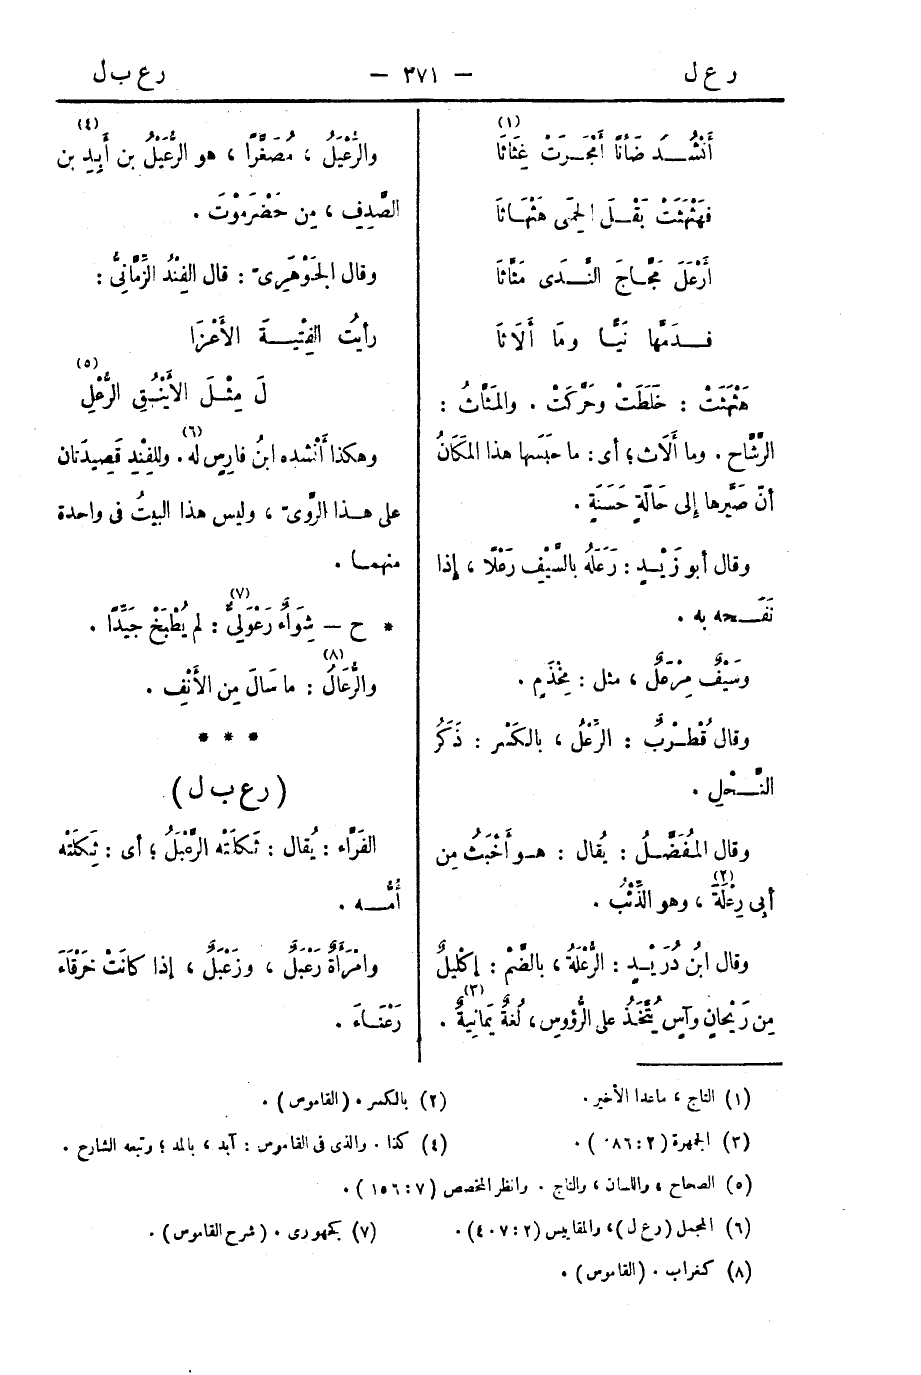 ر ع ل — ٣٧١ — ر ع ب ل
(١)
أَنْشُـــدُ ضَأْنًا أَمْجَـرَتْ غِثَاثَا
فَهَثْهَثَتْ بَقْـلَ الْحِمَى هَثْهَـاثَا
أَرْعَلَ مَجَّـاجَ النَّــدَى مَثَّاثَا
فَـدَمَّهَا نَيًّـا ومَا أَلَاثَا
هَثْهَثَتْ : خَلَطَتْ وحَرَّكَتْ . والمَثَّاثُ :
الرَّشَّاح . وما أَلَاث ؛ أى : ما حَبَسَها هذا المَكَانُ
أنْ صَيَّرها إلى حَالَةٍ حَسَنَةٍ .
وقال أبو زَيْــدٍ : رَعَلَهُ بالسَّيْفِ رَعْلًا ، إذا
نَفَــحه به .
وسَيْفٌ مِرْعَلٌ ، مثل : مِخْذَمٍ .
وقال قُطْـرُبٌ : الرِّعْلُ ، بالكَسْر : ذَكَرُ
النَّــحْلِ .
وقال المُفَضَّــلُ : يُقال : هــو أَخْبَثُ مِن
أبِى رِعْلَةَ (٢) ، وهو الذِّئْبُ .
وقال ابنُ دُرَيْــدٍ : الرُّعْلَةُ ، بالضَّمِّ : إكْلِيلٌ
مِن رَيْحانٍ وآسٍ يُتَّخَذُ على الرُّؤوسِ ، لُغةٌ يَمانِيةٌ (٣) .
والرُّعَيْلُ ، مُصَغَّرًا ، هو الرُّعَيْلُ بن أَبِيدِ (٤) بن
الصَّدِفِ ، مِن حَضْرَمَوْتَ .
وقال الجَوْهَرِىّ : قال الفِنْدُ الزِّمَّانِىُّ :
رأيتُ الفِتْيــةَ الأَعْزَا
لَ مِثْــلَ الأَيْنُــقِ الرُّعْلِ (٥)
وهكذا أَنْشده ابنُ فارِسٍ لَه (٦) . وللفِنْدِ قَصِيدَتان
على هــذا الرَّوِىّ ، وليس هذا البيتُ فى واحدة
منهمــا .
* ح — شِوَاءٌ رَعْوَلِىٌّ (٧) : لم يُطْبَخْ جَيِّدًا .
والرُّعَالُ (٨) : ما سَالَ مِن الأَنْفِ .
* * *
( ر ع ب ل )
الفَرَّاء : يُقال : ثَكِلَتْه الرَّعْبَلُ ؛ أى : ثَكِلَتْه
أُمُّـــه .
وامْرَأَةٌ رَعْبَلٌ ، وزَعْبَلٌ ، إذا كانَتْ خَرْقَاءَ
رَعْنَــاءَ .
(١) التاج ، ماعدا الأخير .
(٢) بالكسر . (القاموس) .
(٣) الجمهرة (٢ : ٣٨٦) .
(٤) كذا . والذى فى القاموس : آبد ، بالمد ؛ وتبعه الشارح .
(٥) الصحاح ، واللسان ، والتاج . وانظر المخصص (٧ : ١٥٦) .
(٦) المجمل (رع ل) ، والمقاييس (٢ : ٤٠٧) .
(٧) كجهورى . (شرح القاموس) .
(٨) كغراب . (القاموس) .